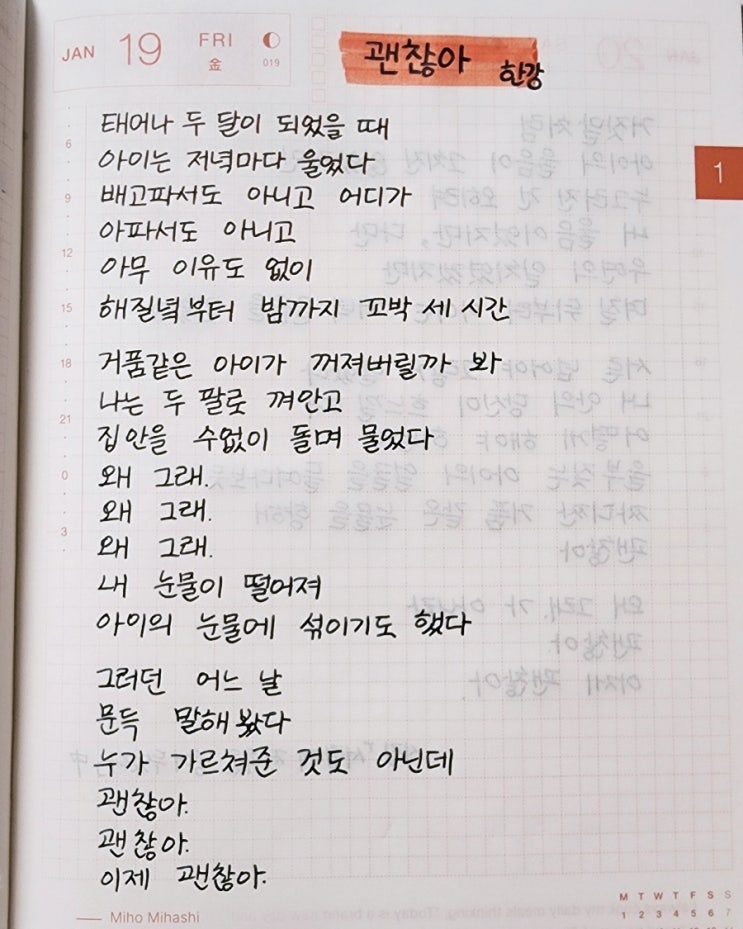 JAN 19 FRI
金 019
괜찮아 한강
태어나 두 달이 되었을 때
아이는 저녁마다 울었다
배고파서도 아니고 어디가
아파서도 아니고
아무 이유도 없이
해질녘부터 밤까지 꼬박 세 시간
거품같은 아이가 꺼져버릴까 봐
나는 두 팔로 껴안고
집안을 수없이 돌며 물었다
왜 그래.
왜 그래.
왜 그래.
내 눈물이 떨어져
아이의 눈물에 섞이기도 했다
그러던 어느 날
문득 말해봤다
누가 가르쳐준 것도 아닌데
괜찮아.
괜찮아.
이제 괜찮아.
6
9
12
15
18
21
0
3
1
Miho Mihashi
M T W T F S S
1 2 3 4 5 6 7